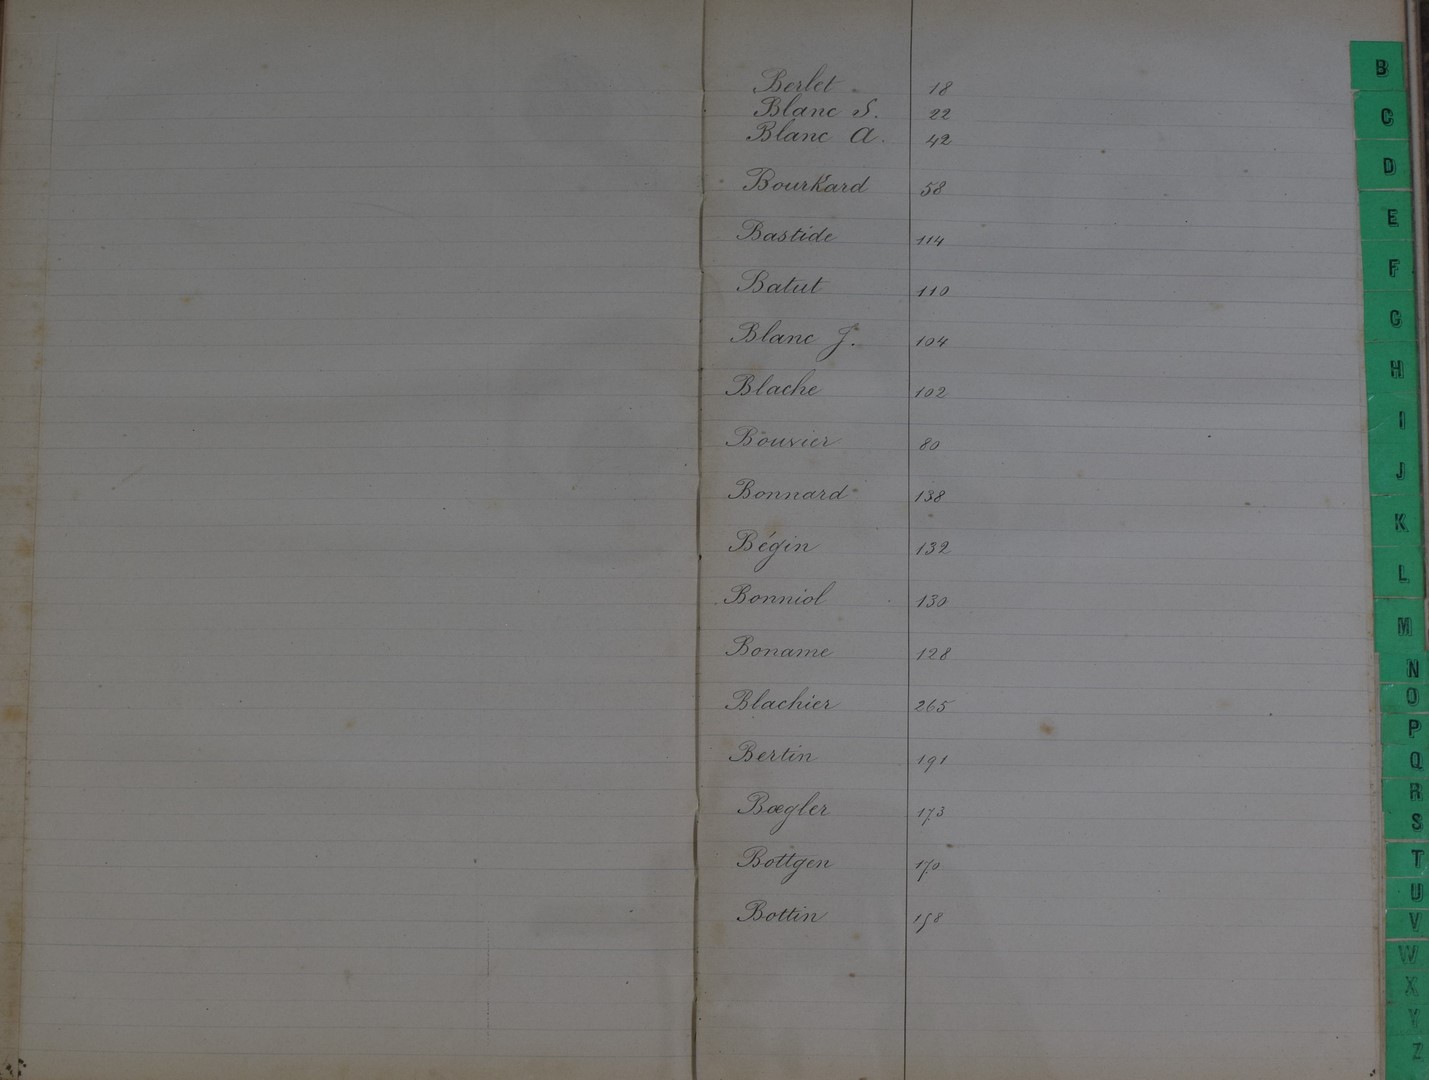 Berlet 18
Blanc S. 22
Blanc A. 42
Bourkard 58
Bastide 114
Batut 110
Blanc J. 104
Blache 102
Bouvier 80
Bonnard 138
Bégin 132
Bonniol 130
Boname 128
Blachier 265
Bertin 191
Bœgler 173
Bottgen 170
Bottin 158
B
C
D
E
F
G
H
I
J
K
L
M
N
O
P
Q
R
S
T
U
V
W
X
Y
Z